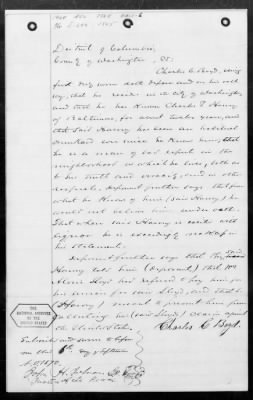 District of Columbia,
County of Washington, SS:
Charles C. Boyd, being
first duly sworn doth depose and on his oath
say, that he resides in the city of Washington,
and that he has known Charles F. Harvey
of Baltimore, for about twelve years, and
that said Harvey has been an habitual
drunkard ever since he knew him; that
he is a man of bad repute in the
neighborhood in which he lives, both as
to his truth and veracity, and in other
respects. Deponent further says that from
what he knows of him (said Harvey) he
would not believe him under oath.
That when said Harvey is excited with
liquor he is exceedingly reckless in
his statements.
Deponent further says that the said
Harvey told him (Deponent) that
Lloyd had refused to pay him for
his services for said Lloyd, and that
(Harvey) meant to prevent him from
(said Lloyd) claim against
the United States.
Charles C. Boyd.
Subscribed and sworn to before
me this 6th day of
John H. Johnson
Justice of the Peace
THE
NATIONAL ARCHIVES
OF THE
UNITED STATES